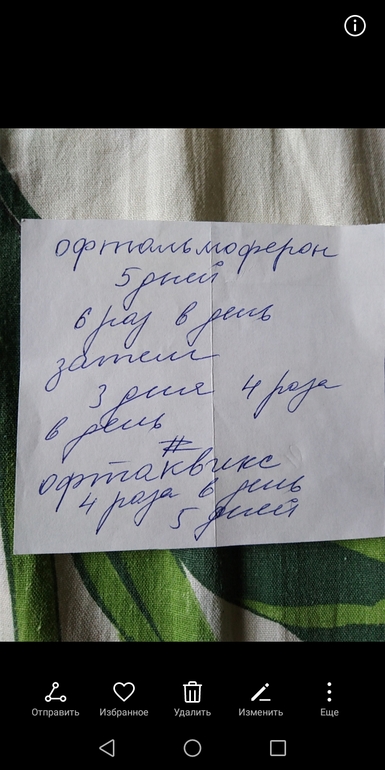 офтальмоферон
5 дней
6 раз в день
затем
3 дня 4 раза
в день
#
офтаквикс
4 раза в день
5 дней
Отправить Избранное Удалить Изменить Еще